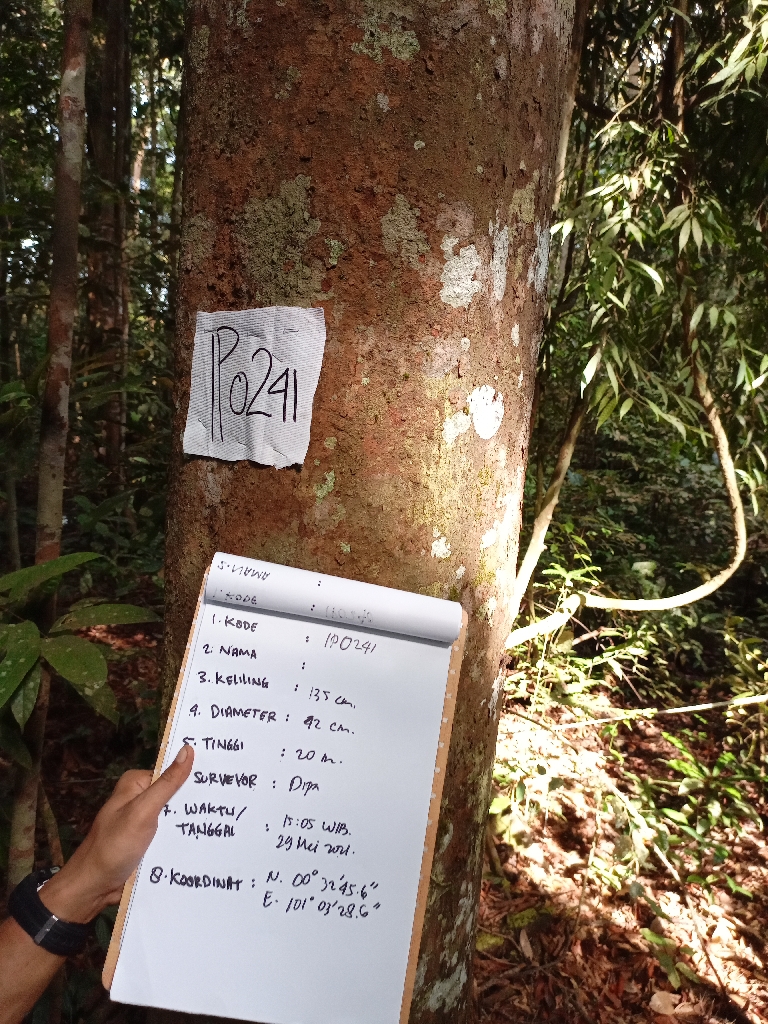 IP0241
5. NAMA :
1. KODE :
1. KODE : IP0241
2. NAMA :
3. KELILING : 135 cm.
4. DIAMETER : 42 cm.
5. TINGGI : 20 m.
SURVEYOR : Dipa
7. WAKTU/ : 15:05 WIB.
TANGGAL 29 Mei 2021.
8. KOORDINAT : N. 00° 32' 45.6"
E. 101° 03' 28.6"